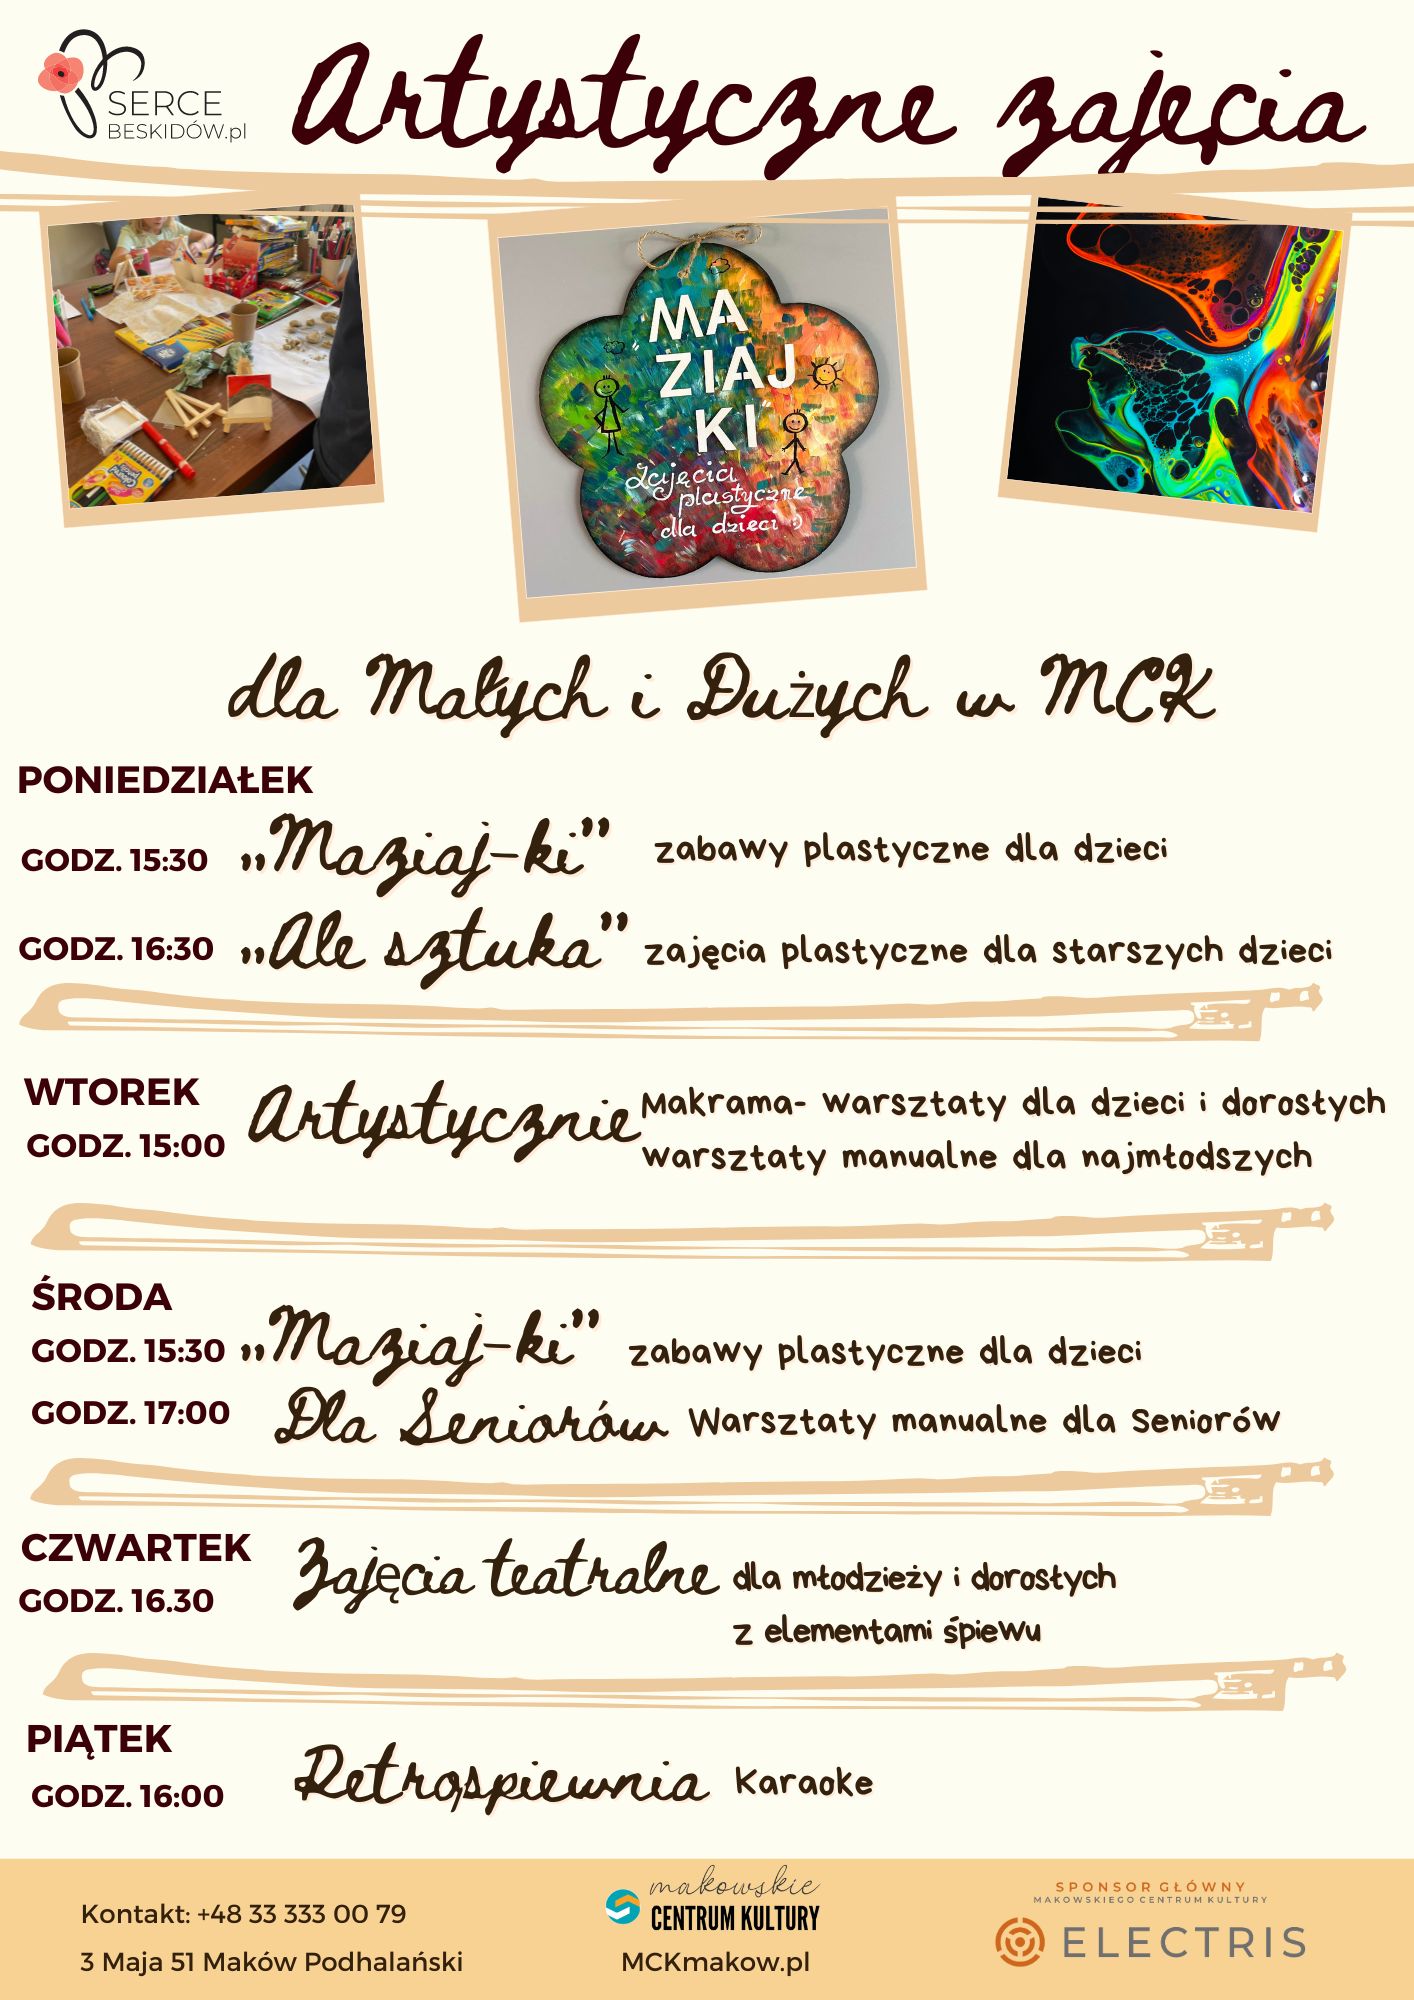 SERCE
BESKIDÓW.pl
Artystyczne zajęcia
MA
ZIAJ
KI
Zajęcia
plastyczne
dla dzieci :)
dla Małych i Dużych w MCK
PONIEDZIAŁEK
GODZ. 15:30 „Maziaj-ki” zabawy plastyczne dla dzieci
GODZ. 16:30 „Ale sztuka” zajęcia plastyczne dla starszych dzieci
WTOREK
GODZ. 15:00 Artystycznie Makrama- warsztaty dla dzieci i dorosłych
warsztaty manualne dla najmłodszych
ŚRODA
GODZ. 15:30 „Maziaj-ki” zabawy plastyczne dla dzieci
GODZ. 17:00 Dla Seniorów Warsztaty manualne dla Seniorów
CZWARTEK
GODZ. 16.30 Zajęcia teatralne dla młodzieży i dorosłych
z elementami śpiewu
PIĄTEK
GODZ. 16:00 Retrośpiewnia Karaoke
Kontakt: +48 33 333 00 79
3 Maja 51 Maków Podhalański
makowskie
CENTRUM KULTURY
MCKmakow.pl
SPONSOR GŁÓWNY
MAKOWSKIEGO CENTRUM KULTURY
ELECTRIS